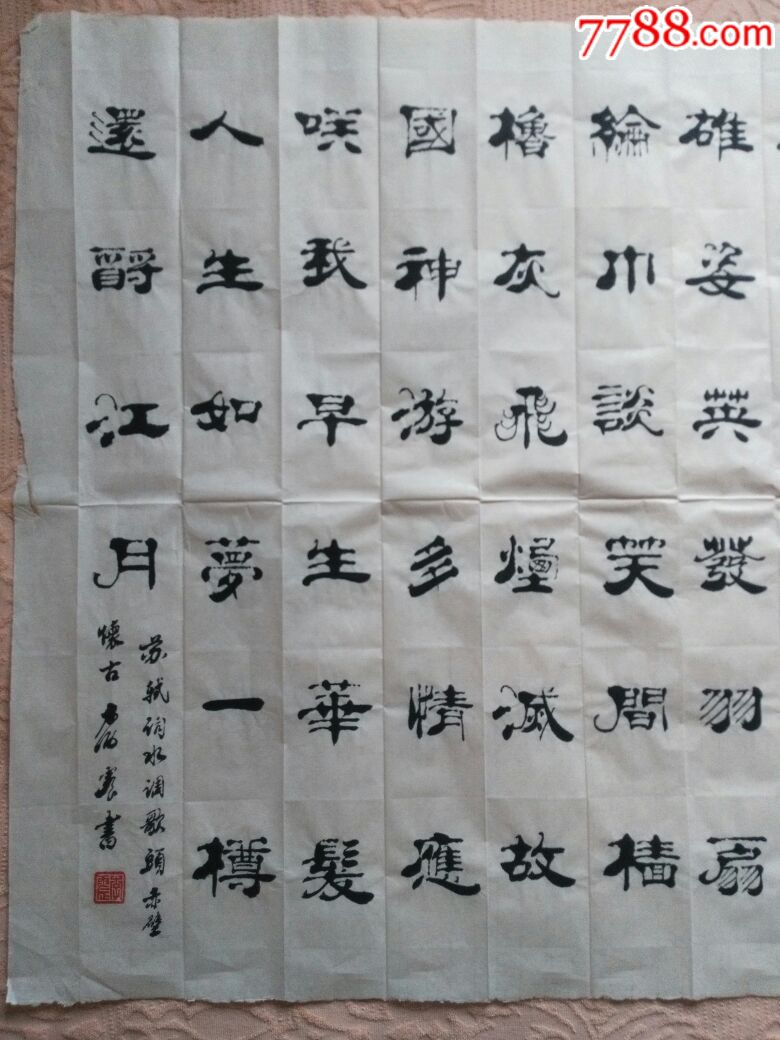 7788.com
雄姿英發羽扇
綸巾談笑間檣
櫓灰飛煙滅故
國神游多情應
咲我早生華髮
人生如夢一樽
還酹江月
苏軾词水调歌頭赤壁
懷古
書